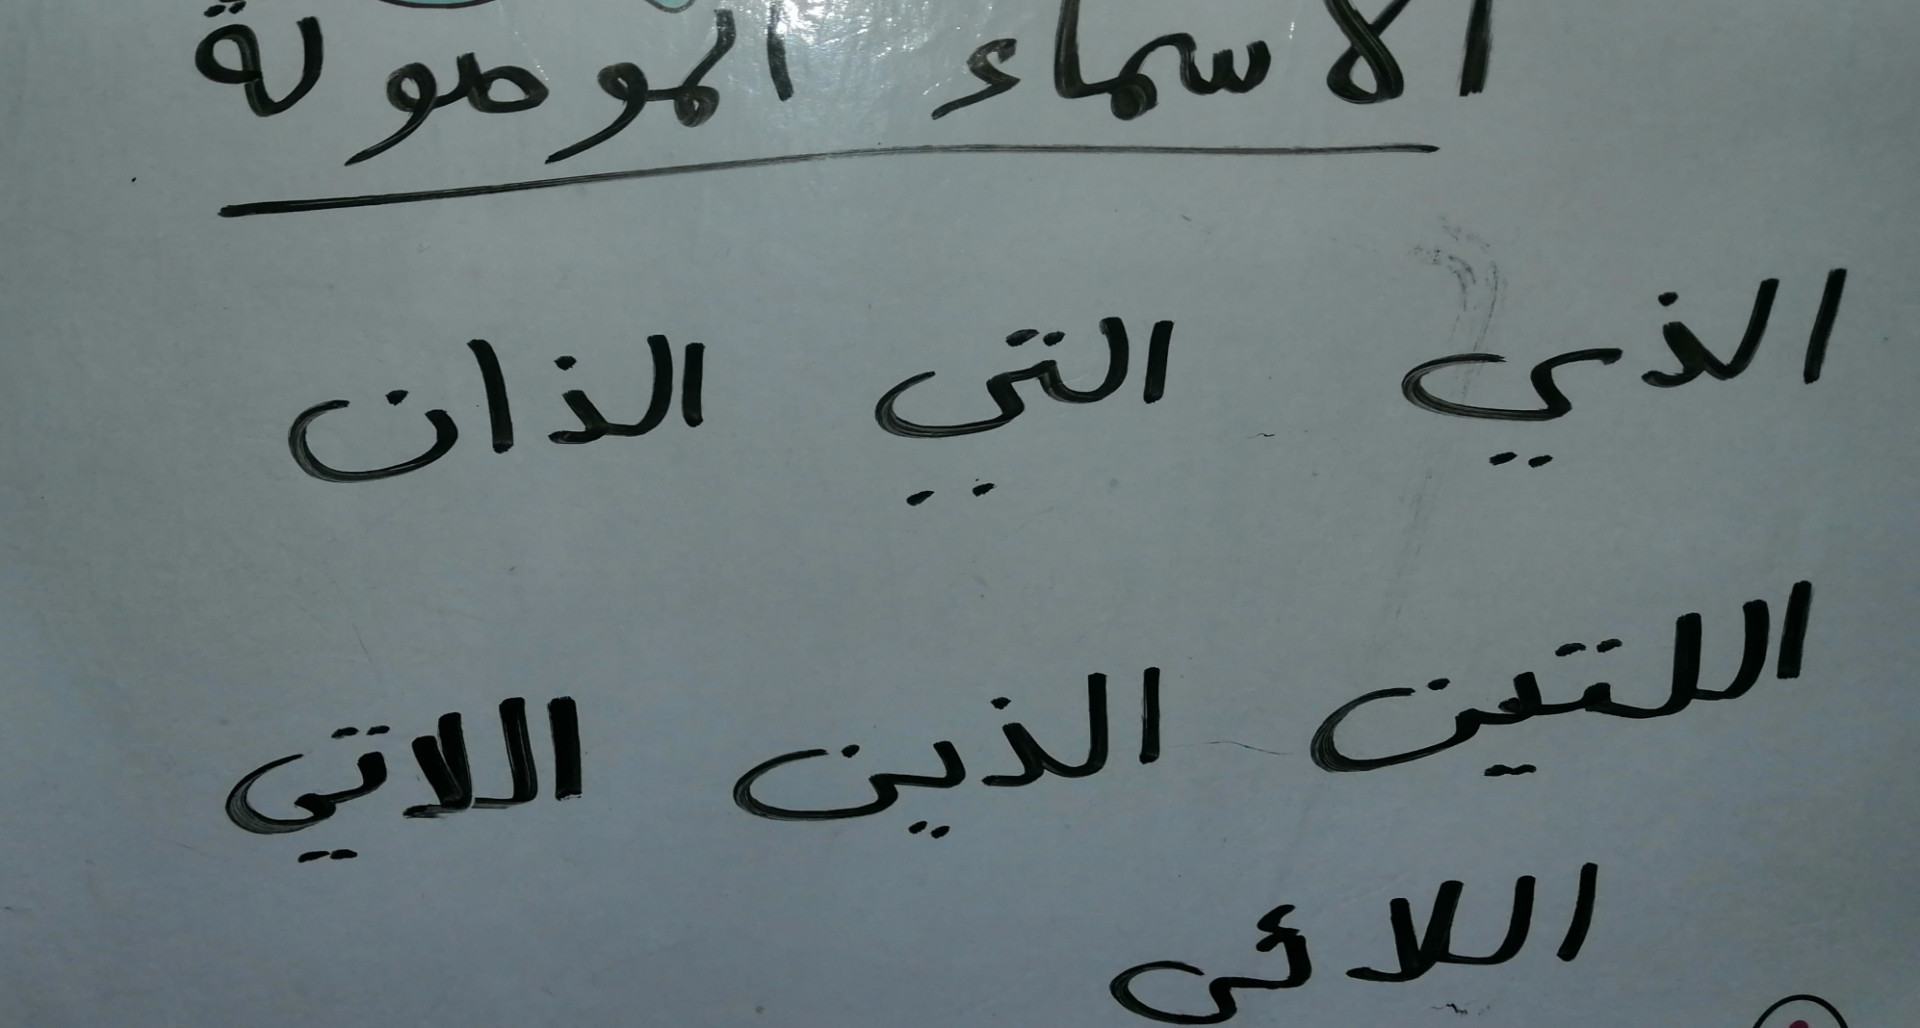 الاسماء الموصولة
الذي التي الذان
اللتين الذين اللاتي
اللائي